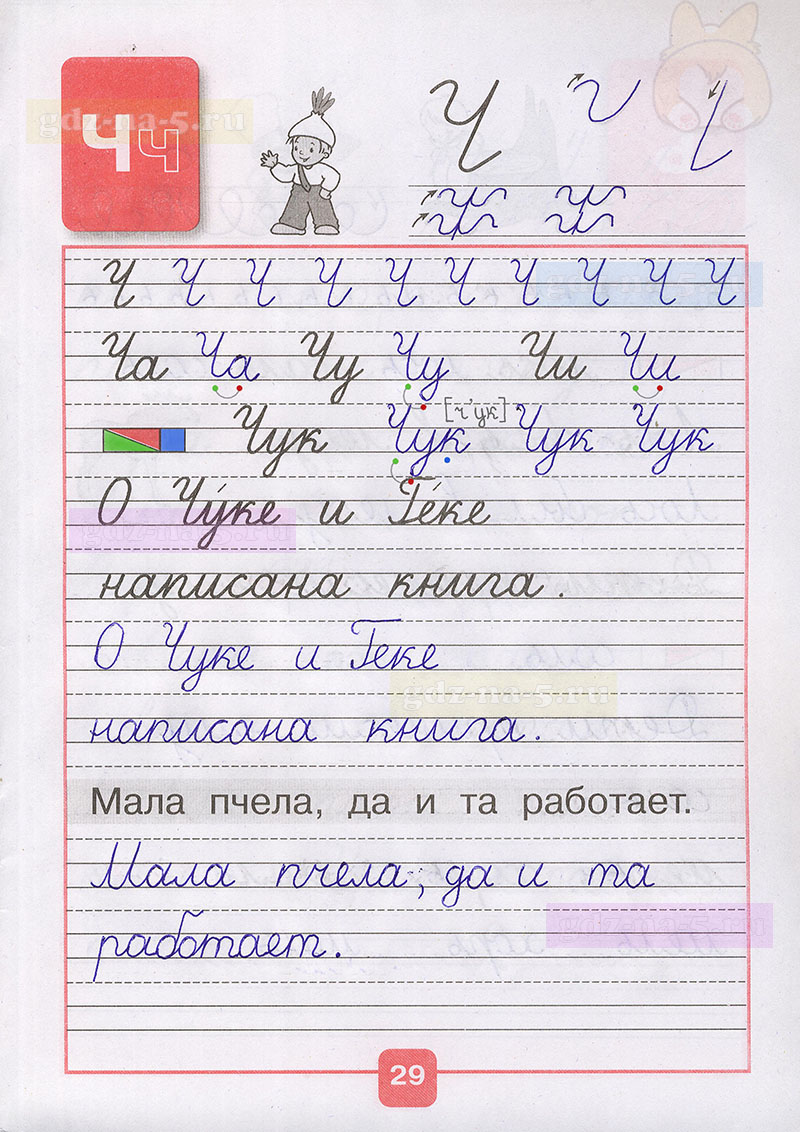 Чч
gdz-na-5.ru
Ч
Ч Ч Ч Ч Ч Ч Ч Ч Ч Ч
Ча Ча Чу Чу Чи Чи
[ч'ук]
Чук Чук Чук Чук
О Чу́ке и Ге́ке
gdz-na-5.ru
написана книга.
О Чуке и Геке
gdz-na-5.ru
написана книга.
Мала пчела, да и та работает.
Мала пчела, да и та
gdz-na-5.ru
работает.
29